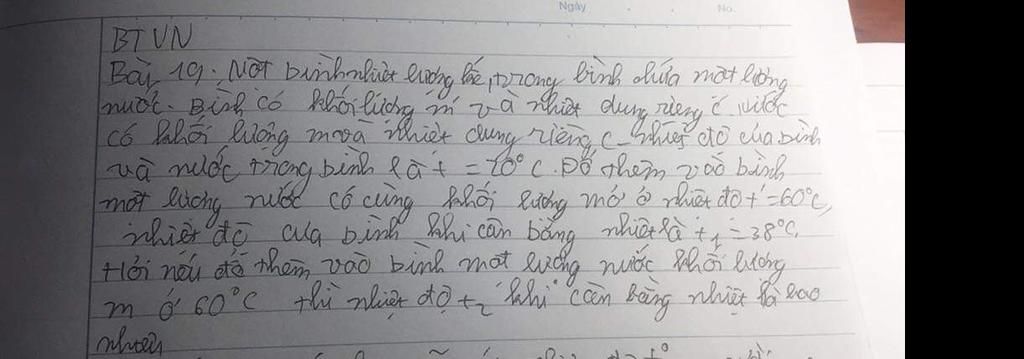 Ngày No.
BTVN
Bài 19. Một bình nhiệt lượng kế, trong bình chứa một lượng
nước. Bình có khối lượng m' và nhiệt dung riêng c'. Nước
có khối lượng m và nhiệt dung riêng c. nhiệt độ của bình
và nước trong bình là t = 20°C. Đổ thêm vào bình
một lượng nước có cùng khối lượng m ở nhiệt độ t' = 60°C,
nhiệt độ của bình khi cân bằng nhiệt là t₁ = 38°C.
Hỏi nếu đổ thêm vào bình một lượng nước khối lượng
m ở 60°C thì nhiệt độ t₂ khi cân bằng nhiệt là bao
nhiêu